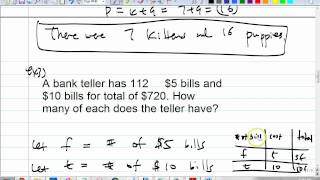 P = k+9 = 7+9 = 16
There were 7 kittens and 16 puppies
A bank teller has 112 $5 bills and
$10 bills for total of $720. How
many of each does the teller have?
let f = # of $5 bills
let t = # of $10 bills
# of bill cost total
f 5f
t 10 10t